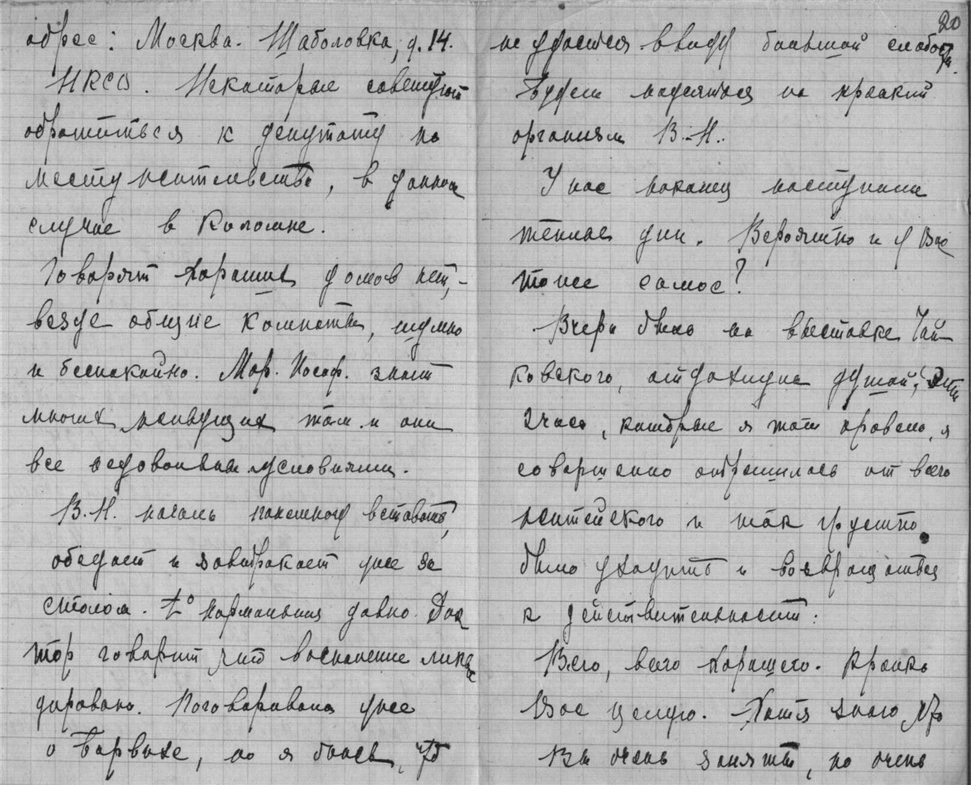 адрес: Москва. Шаболовка, д. 14.
НКСО. Некоторые советуют
обратиться к депутату по
месту жительства, в данном
случае в Коломне.
Говорят хороших домов нет, -
везде общие комнаты, шумно
и беспокойно. Мар. Иосиф. знает
многих живущих там и они
все недовольны условиями.
В.Н. начал понемногу вставать,
обедает и завтракает уже за
столом. t° нормальная давно. Док
тор говорит, что воспаление ликви
дировано. Поговаривали уже
о Барвихе, но я боюсь, что
20
не удастся ввиду большой слабости.
Будем надеяться на крепкий
организм В.Н..
У нас наконец наступили
теплые дни. Вероятно и у Вас
то же самое?
Вчера была на выставке Чай
ковского, отдохнула душой. Эти
2 часа, которые я там провела, я
совершенно отрешилась от всего
житейского и так грустно
было уходить и возвращаться
к действительности.
Всего, всего хорошего. Крепко
Вас целую. Хотя знаю, что
Вы очень заняты, но очень